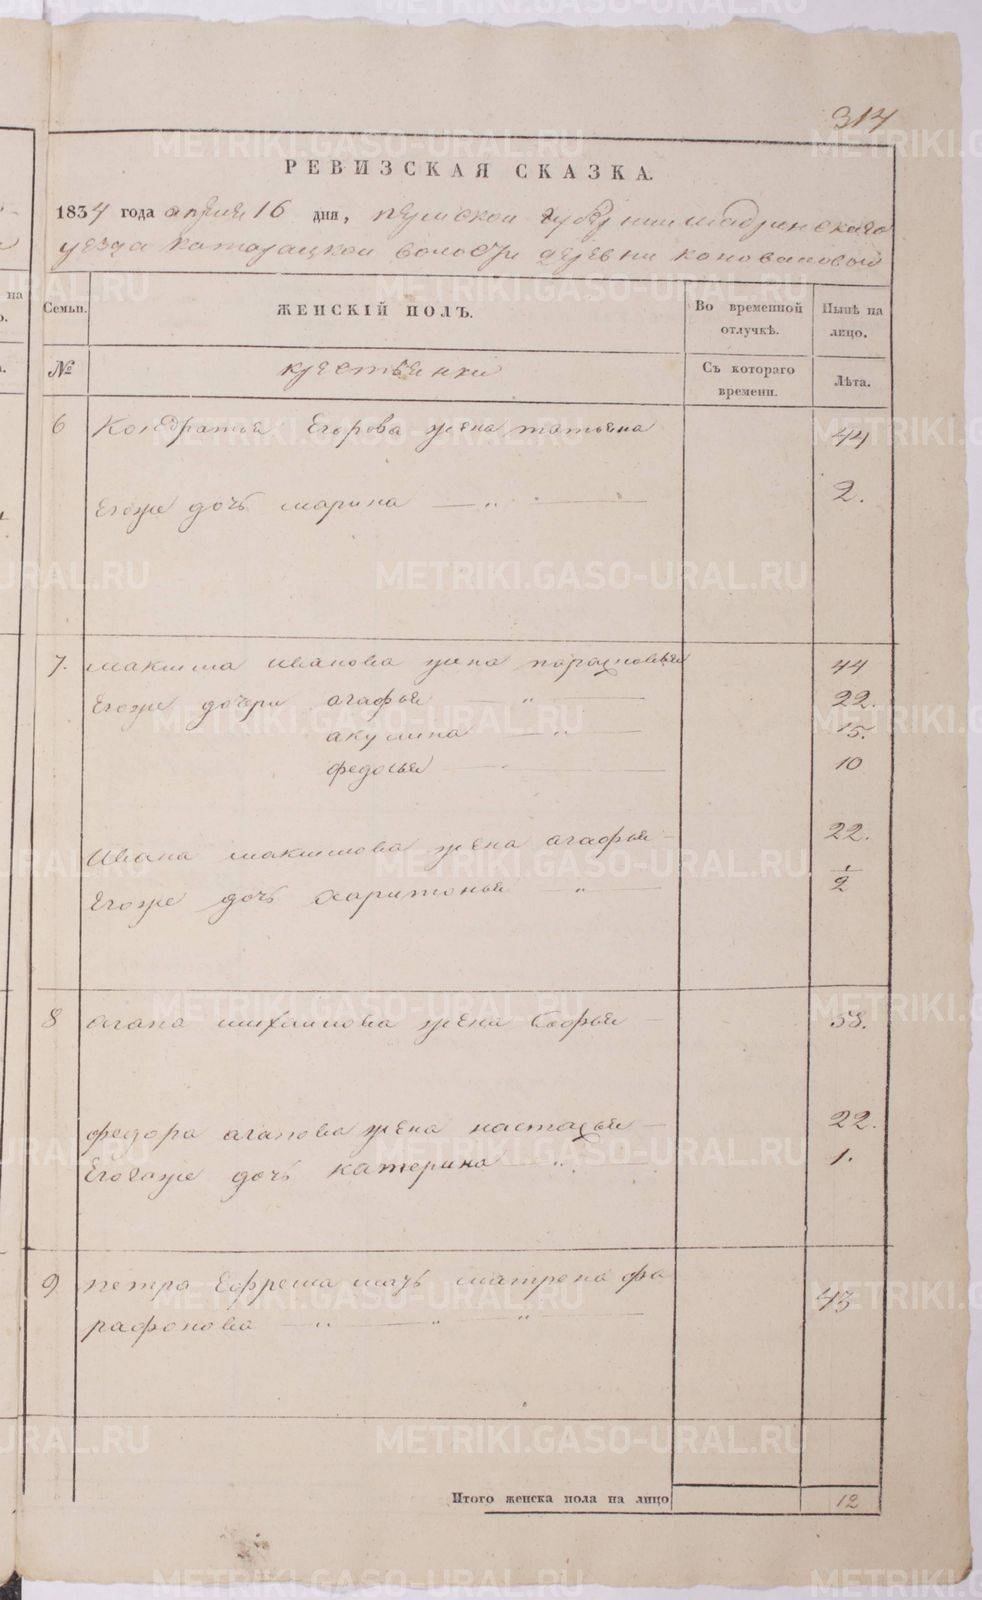 314
РЕВИЗСКАЯ СКАЗКА.
1834 года апреля 16 дня, пермской губернии шадринскаго
уезда катайацкой волости деревни коноваловой
Семьи. ЖЕНСКІЙ ПОЛЪ. Во временной отлучкѣ. Нынѣ на лицо.
№ крестьянки Съ котораго времени. Лѣта.
6 Кондратья Егорова жена татьяна 44
Егоже дочь марина — „ — 2.
7. максима иванова жена парасковья 44
Егоже дочери агафья — „ — 22.
акулина — „ — 15.
федосья — 10
Ивана максимова жена агафья — 22.
Егоже дочь харитонья — „ — 1/2
8 агапа михаилова жена Софья — 58.
федора агапова жена настасья — 22.
Егогоже дочь катерина — „ — 1.
9 петра Ефрема мать матрена фа
рафонова — „ — „ — „ — 43
Итого женска пола на лицо 12
METRIKI.GASO-URAL.RU